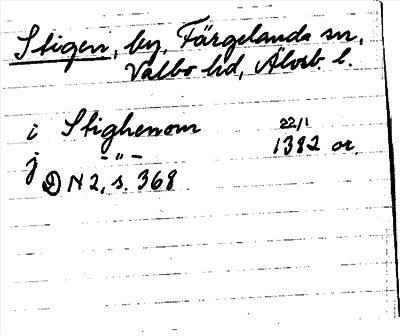 Stigen, by, Färgelanda sn,
Valbo hd, Älvsb. l.
i Stighenom 22/1
j -"- 1382 or.
DN 2, s. 368